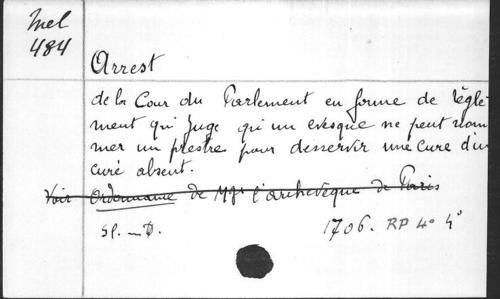 Mel
484
Arrest
de la Cour du Parlement en forme de règle-
ment qui juge qu'un evesque ne peut nom
mer un prestre pour desservir une cure d'un
curé absent.
Voir Ordonnance de Mgr l'archevêque de Paris
Sl. — D. 1706. RP 4° 4°